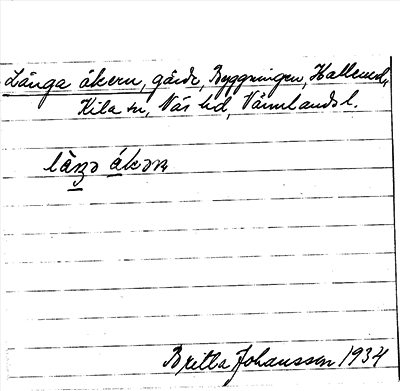 Långa åkern, gärde, Byggningen, Hallerud,
Kila sn, Näs hd, Värmlands l.
làŋgə ákəɳ
Britta Johansson 1934